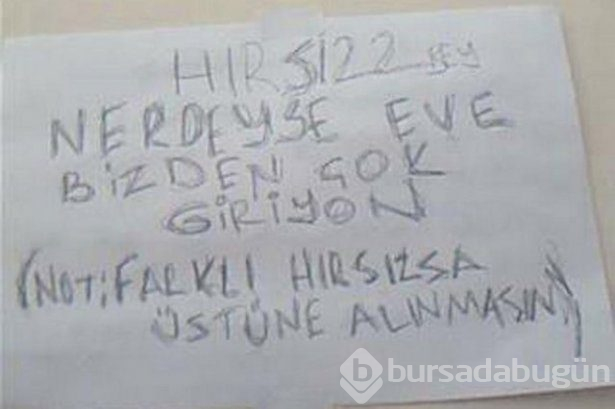 HIRSİZZ BEY
NERDEYSE EVE
BİZDEN ÇOK
GİRİYON
(NOT: FARKLI HIRSIZSA
ÜSTÜNE ALINMASIN)
b bursadabugün